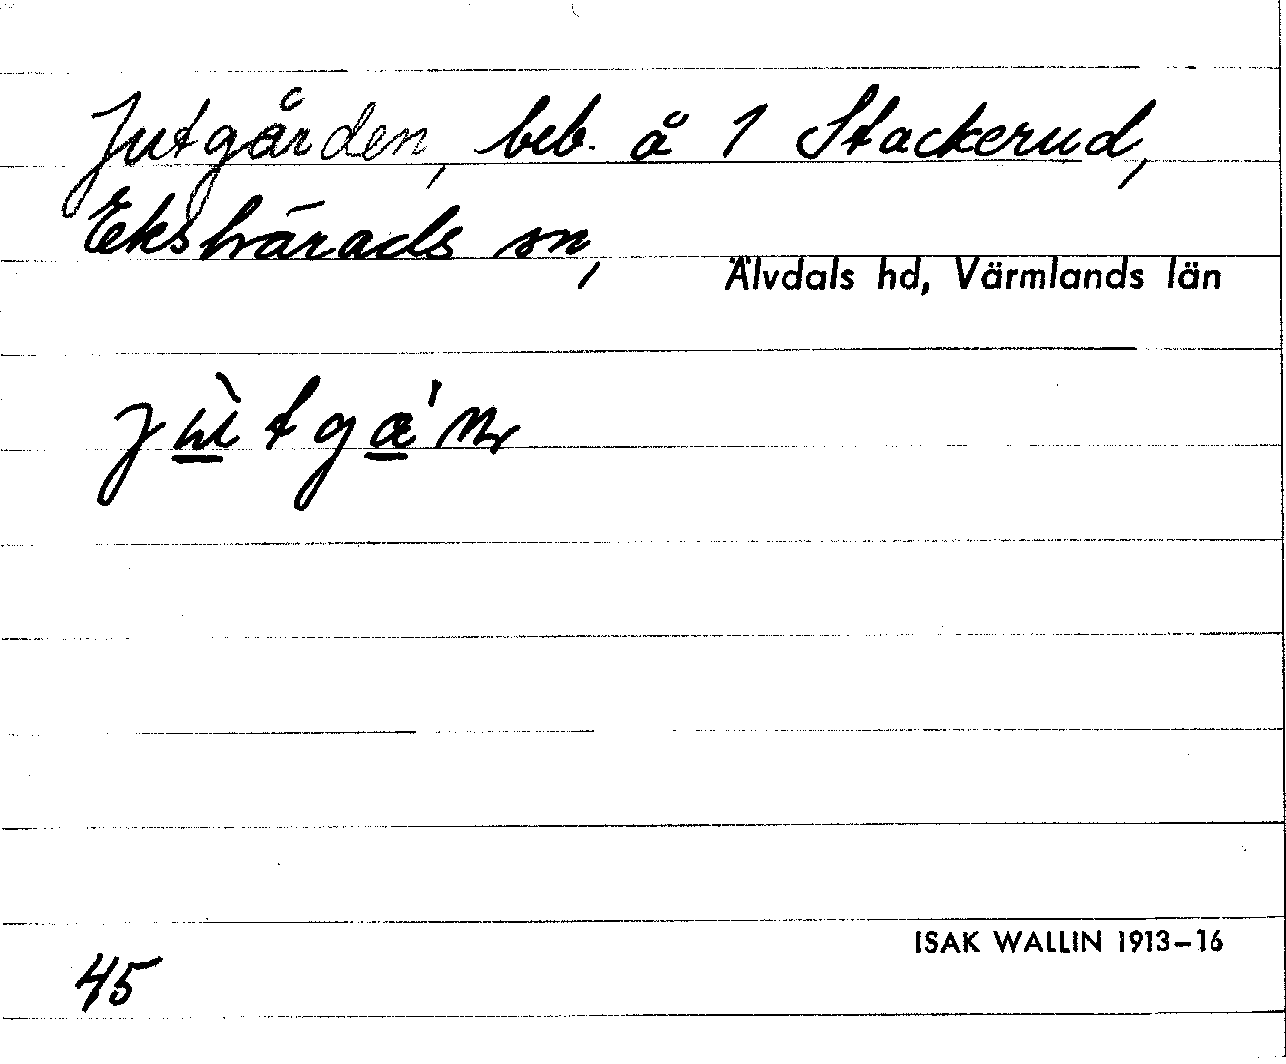 Jutgården, beb. å 1 Stackerud,
Ekshärads sn,
Älvdals hd, Värmlands län
jùtgæ'ɳ
ISAK WALLIN 1913–16
45